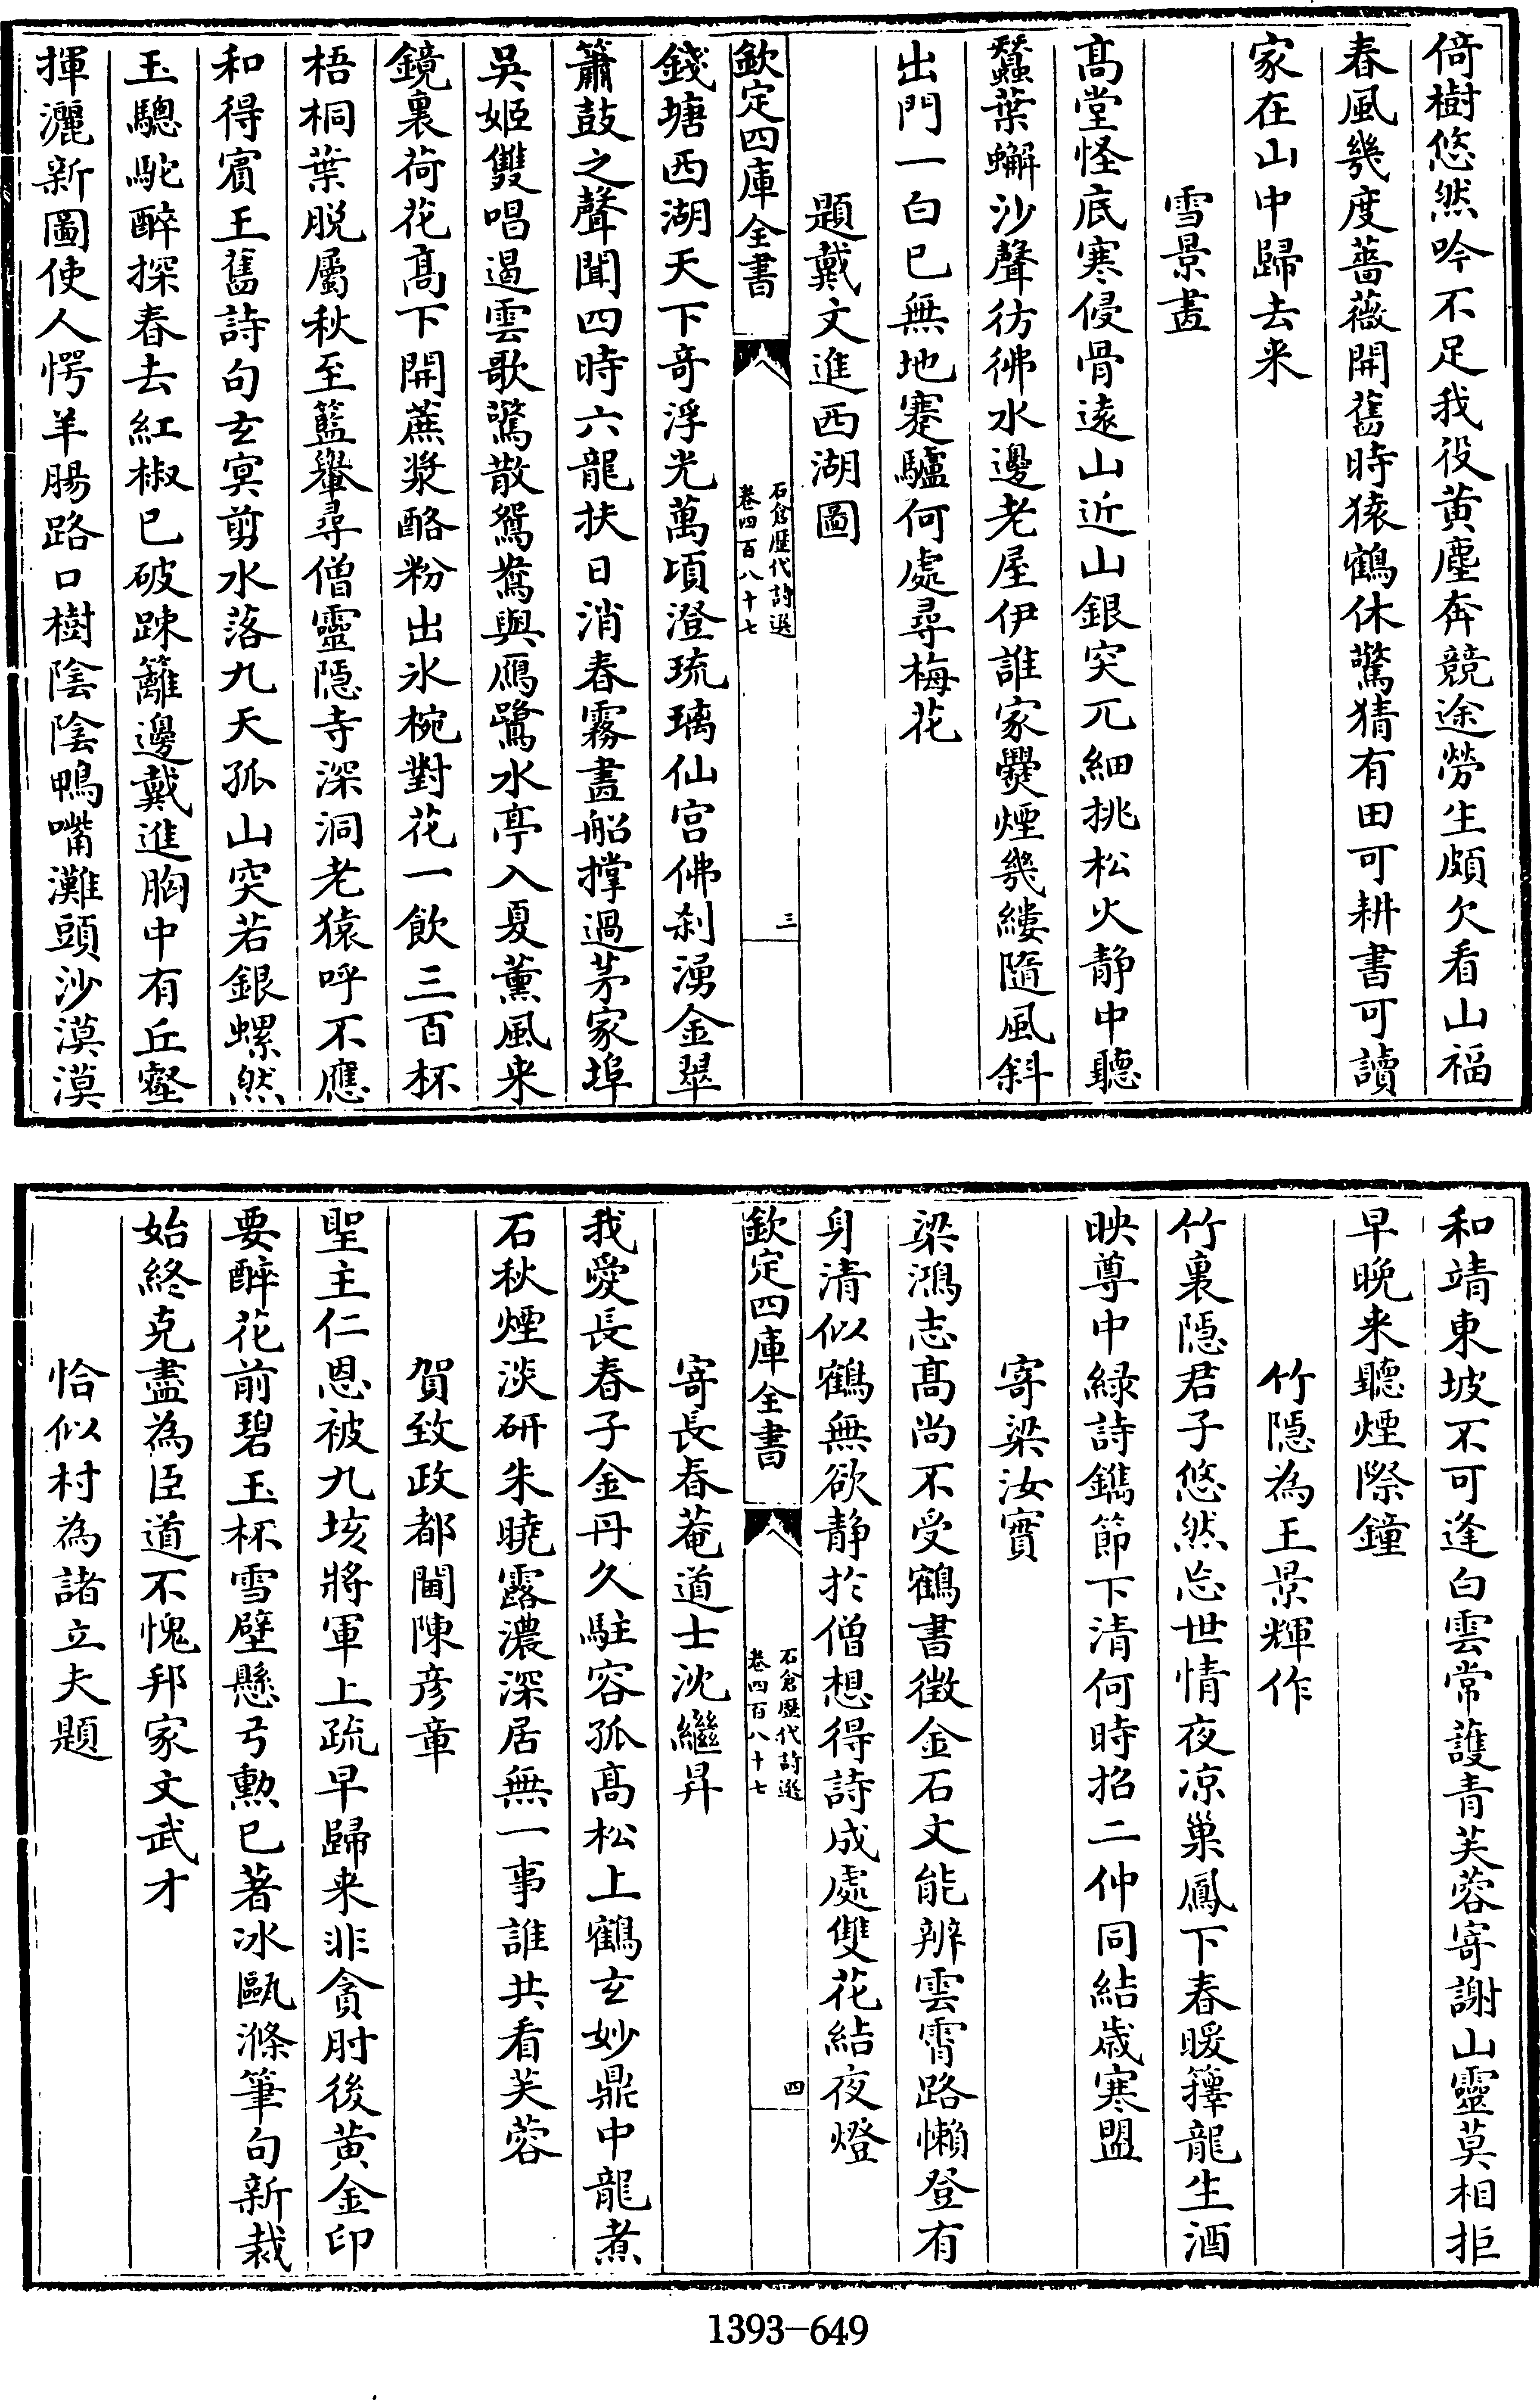 倚樹悠然吟不足我役黄塵奔競途勞生頗欠看山福
春風幾度薔薇開舊時猿鶴休驚猜有田可耕書可讀
家在山中歸去来
雪景畫
髙堂怪底寒侵骨遠山近山銀突兀細挑松火静中聽
蠶葉蠏沙聲彷彿水邊老屋伊誰家爨煙幾縷隨風斜
出門一白已無地蹇驢何處尋梅花
題戴文進西湖圖
欽定四庫全書
石倉歴代詩選
卷四百八十七
三
錢塘西湖天下奇浮光萬頃澄琉璃仙宫佛刹湧金翠
簫鼓之聲聞四時六龍扶日消春霧畫船撑過茅家埠
吳姬雙唱遏雲歌驚散鴛鴦與鴈鷺水亭入夏薰風来
鏡裏荷花髙下開蔗漿酪粉出氷椀對花一飲三百杯
梧桐葉脱屬秋至籃轝尋僧靈隠寺深洞老猿呼不應
和得賔王舊詩句玄㝠剪水落九天孤山突若銀螺然
玉驄䭾醉探春去紅椒已破踈籬邊戴進胸中有丘壑
揮灑新圖使人愕羊腸路口樹陰陰鴨嘴灘頭沙漠漠
和靖東坡不可逢白雲常護青芙蓉寄謝山靈莫相拒
早晚来聽煙際鐘
竹隠為王景輝作
竹裏隠君子悠然忘世情夜凉巢鳳下春暖籜龍生酒
映尊中緑詩鐫節下清何時招二仲同結歳寒盟
寄梁汝實
梁鴻志髙尚不受鶴書徴金石文能辨雲霄路懶登有
身清似鶴無欲静於僧想得詩成處雙花結夜燈
欽定四庫全書
石倉歴代詩選
卷四百八十七
四
寄長春菴道士沈繼昇
我愛長春子金丹久駐容孤髙松上鶴玄妙鼎中龍煮
石秋煙淡研朱曉露濃深居無一事誰共看芙蓉
賀致政都閫陳彦章
聖主仁恩被九垓將軍上疏早歸来非貪肘後黄金印
要醉花前碧玉杯雪壁懸弓勲已著冰甌滌筆句新裁
始終克盡為臣道不愧邦家文武才
恰似村為諸立夫題
1393-649